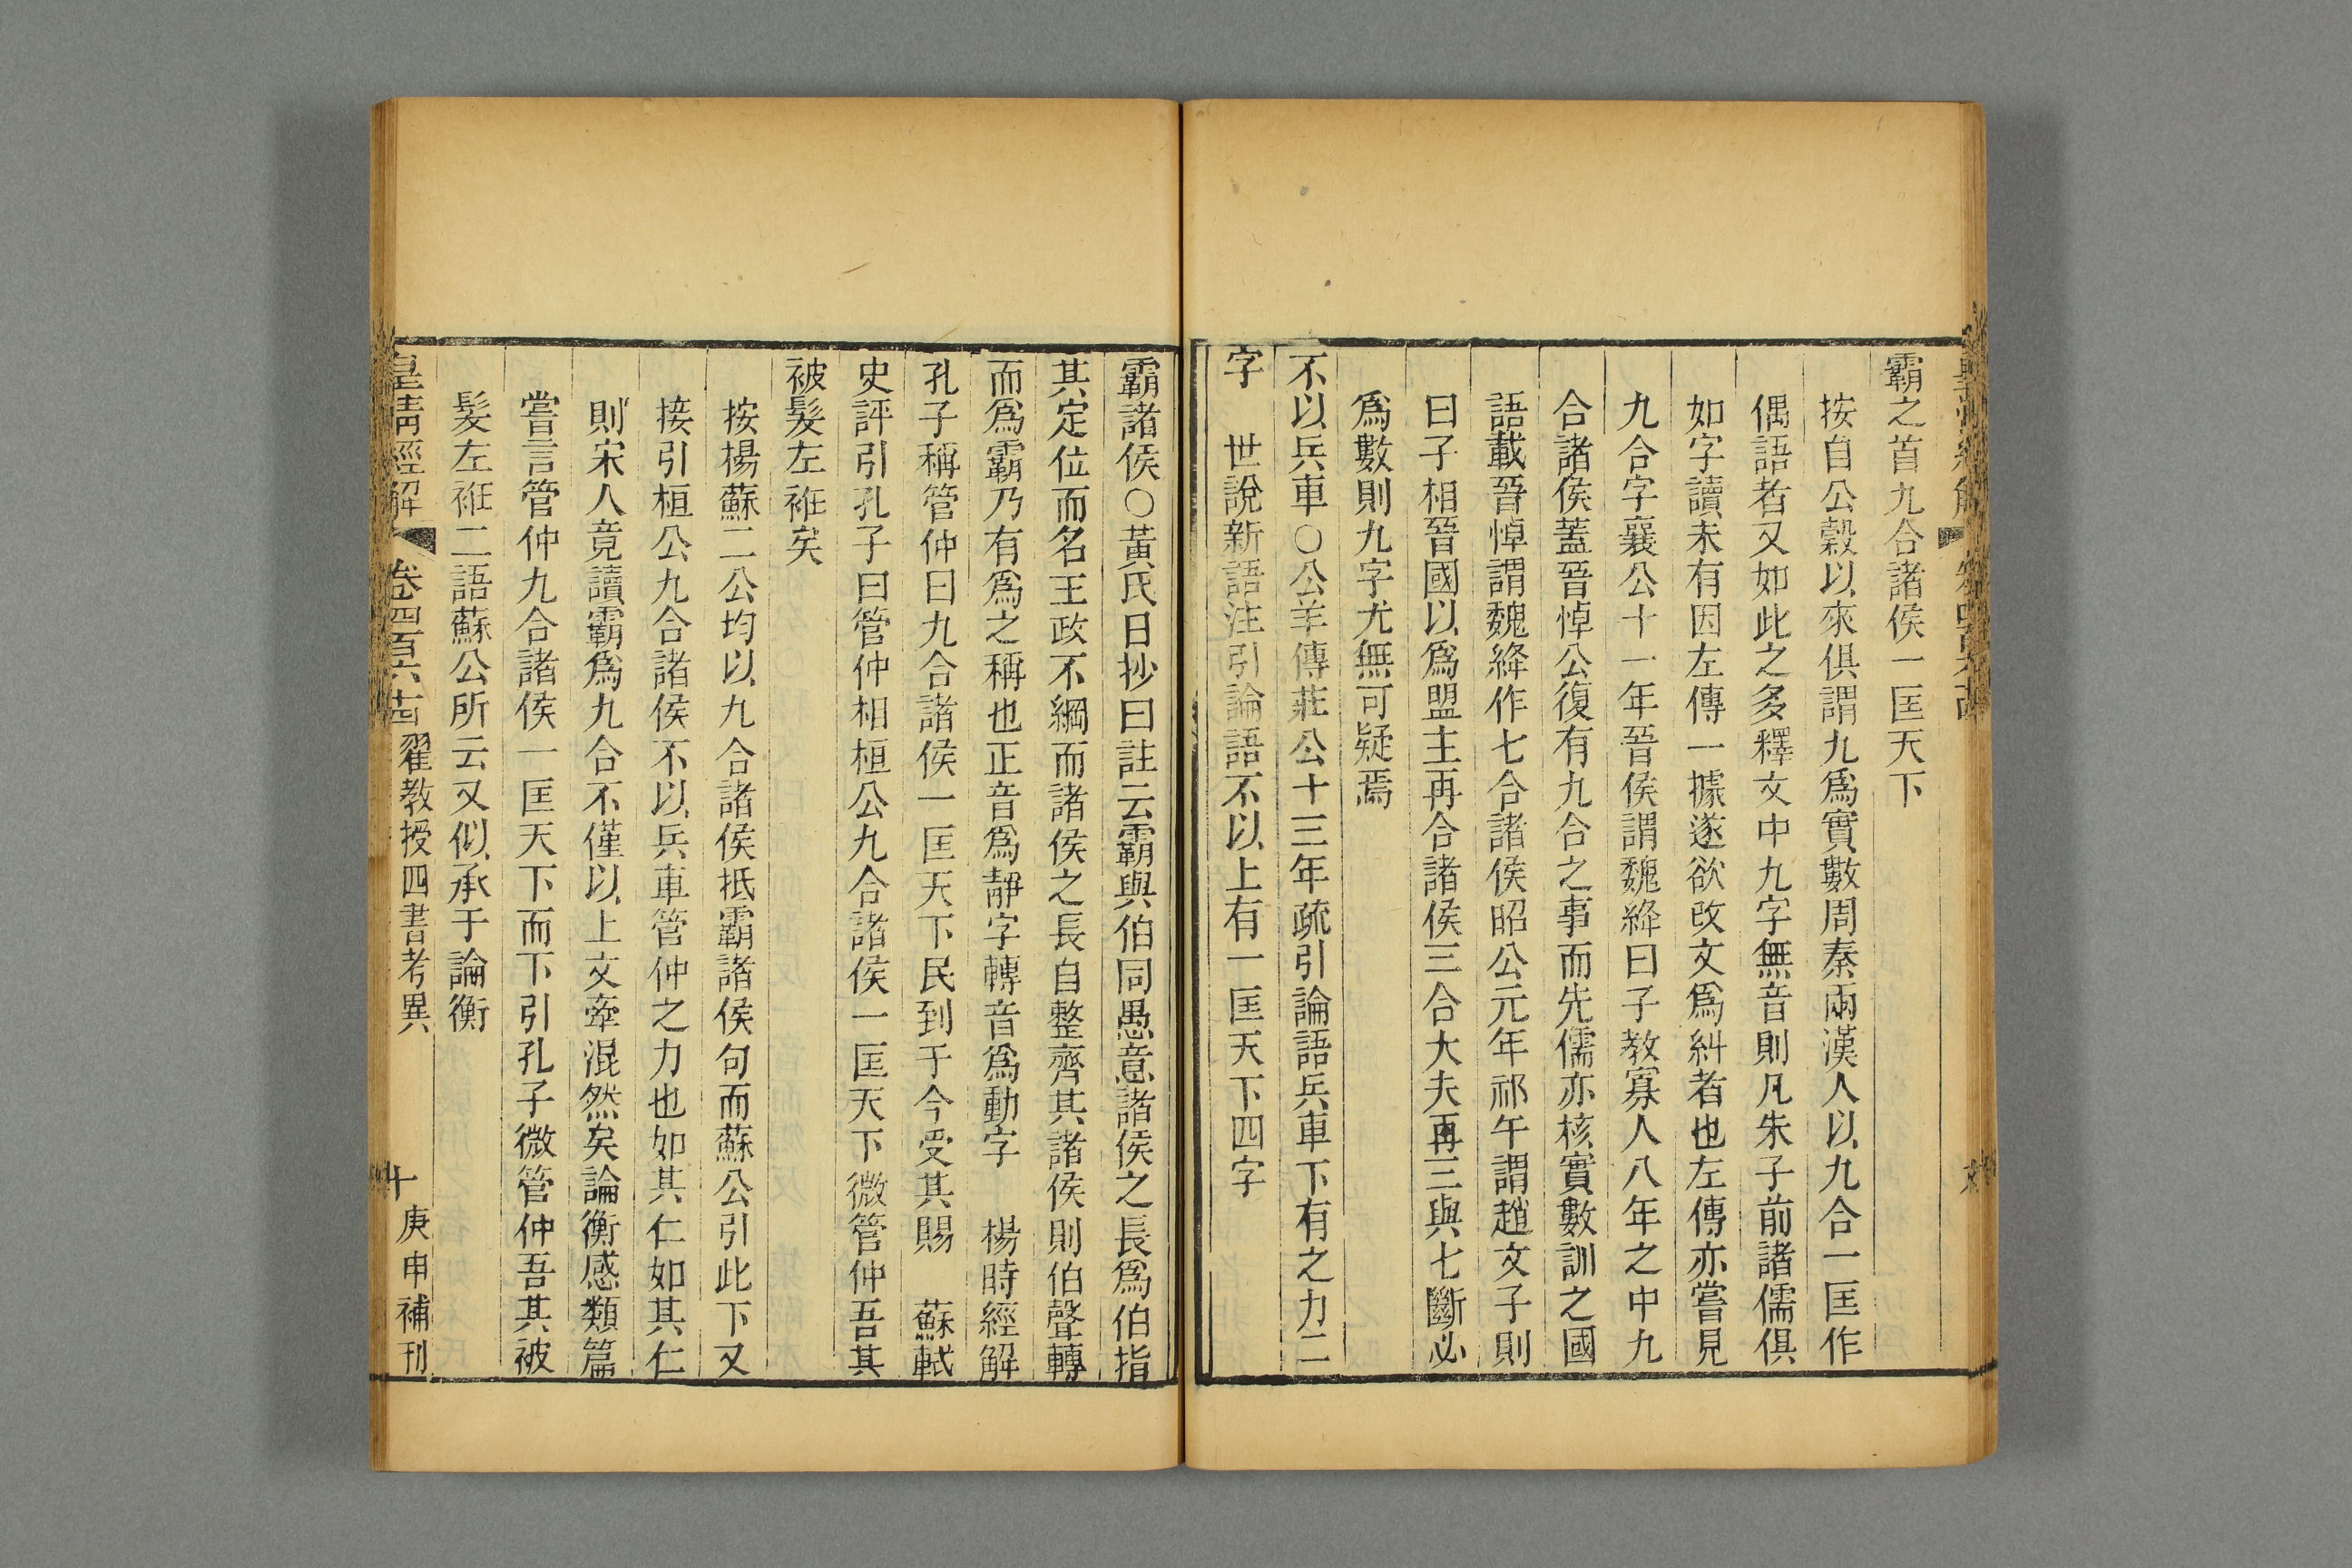 霸之首九合諸侯一匡天下
按自公穀以來俱謂九爲實數周秦兩漢人以九合一匡作
偶語者又如此之多釋文中九字無音則凡朱子前諸儒俱
如字讀未有因左傳一據遂欲改文爲糾者也左傳亦嘗見
九合字襄公十一年晉侯謂魏絳曰子教寡人八年之中九
合諸侯蓋晉悼公復有九合之事而先儒亦核實數訓之國
語載晉悼謂魏絳作七合諸侯昭公元年祁午謂趙文子則
曰子相晉國以爲盟主再合諸侯三合大夫再三與七斷必
爲數則九字尤無可疑焉
不以兵車○公羊傳莊公十三年疏引論語兵車下有之力二
字　世說新語注引論語不以上有一匡天下四字
霸諸侯○黃氏日抄曰註云霸與伯同愚意諸侯之長爲伯指
其定位而名王政不綱而諸侯之長自整齊其諸侯則伯聲轉
而爲霸乃有爲之稱也正音爲靜字轉音爲動字　楊時經解
孔子稱管仲曰九合諸侯一匡天下民到于今受其賜　蘇軾
史評引孔子曰管仲相桓公九合諸侯一匡天下微管仲吾其
被髮左衽矣
按楊蘇二公均以九合諸侯抵霸諸侯句而蘇公引此下又
接引桓公九合諸侯不以兵車管仲之力也如其仁如其仁
則宋人竟讀霸爲九合不僅以上文牽混然矣論衡感類篇
嘗言管仲九合諸侯一匡天下而下引孔子微管仲吾其被
髮左衽二語蘇公所云又似承于論衡
皇淸經解　卷四百六十四　翟教授四書考異　十　庚申補刊